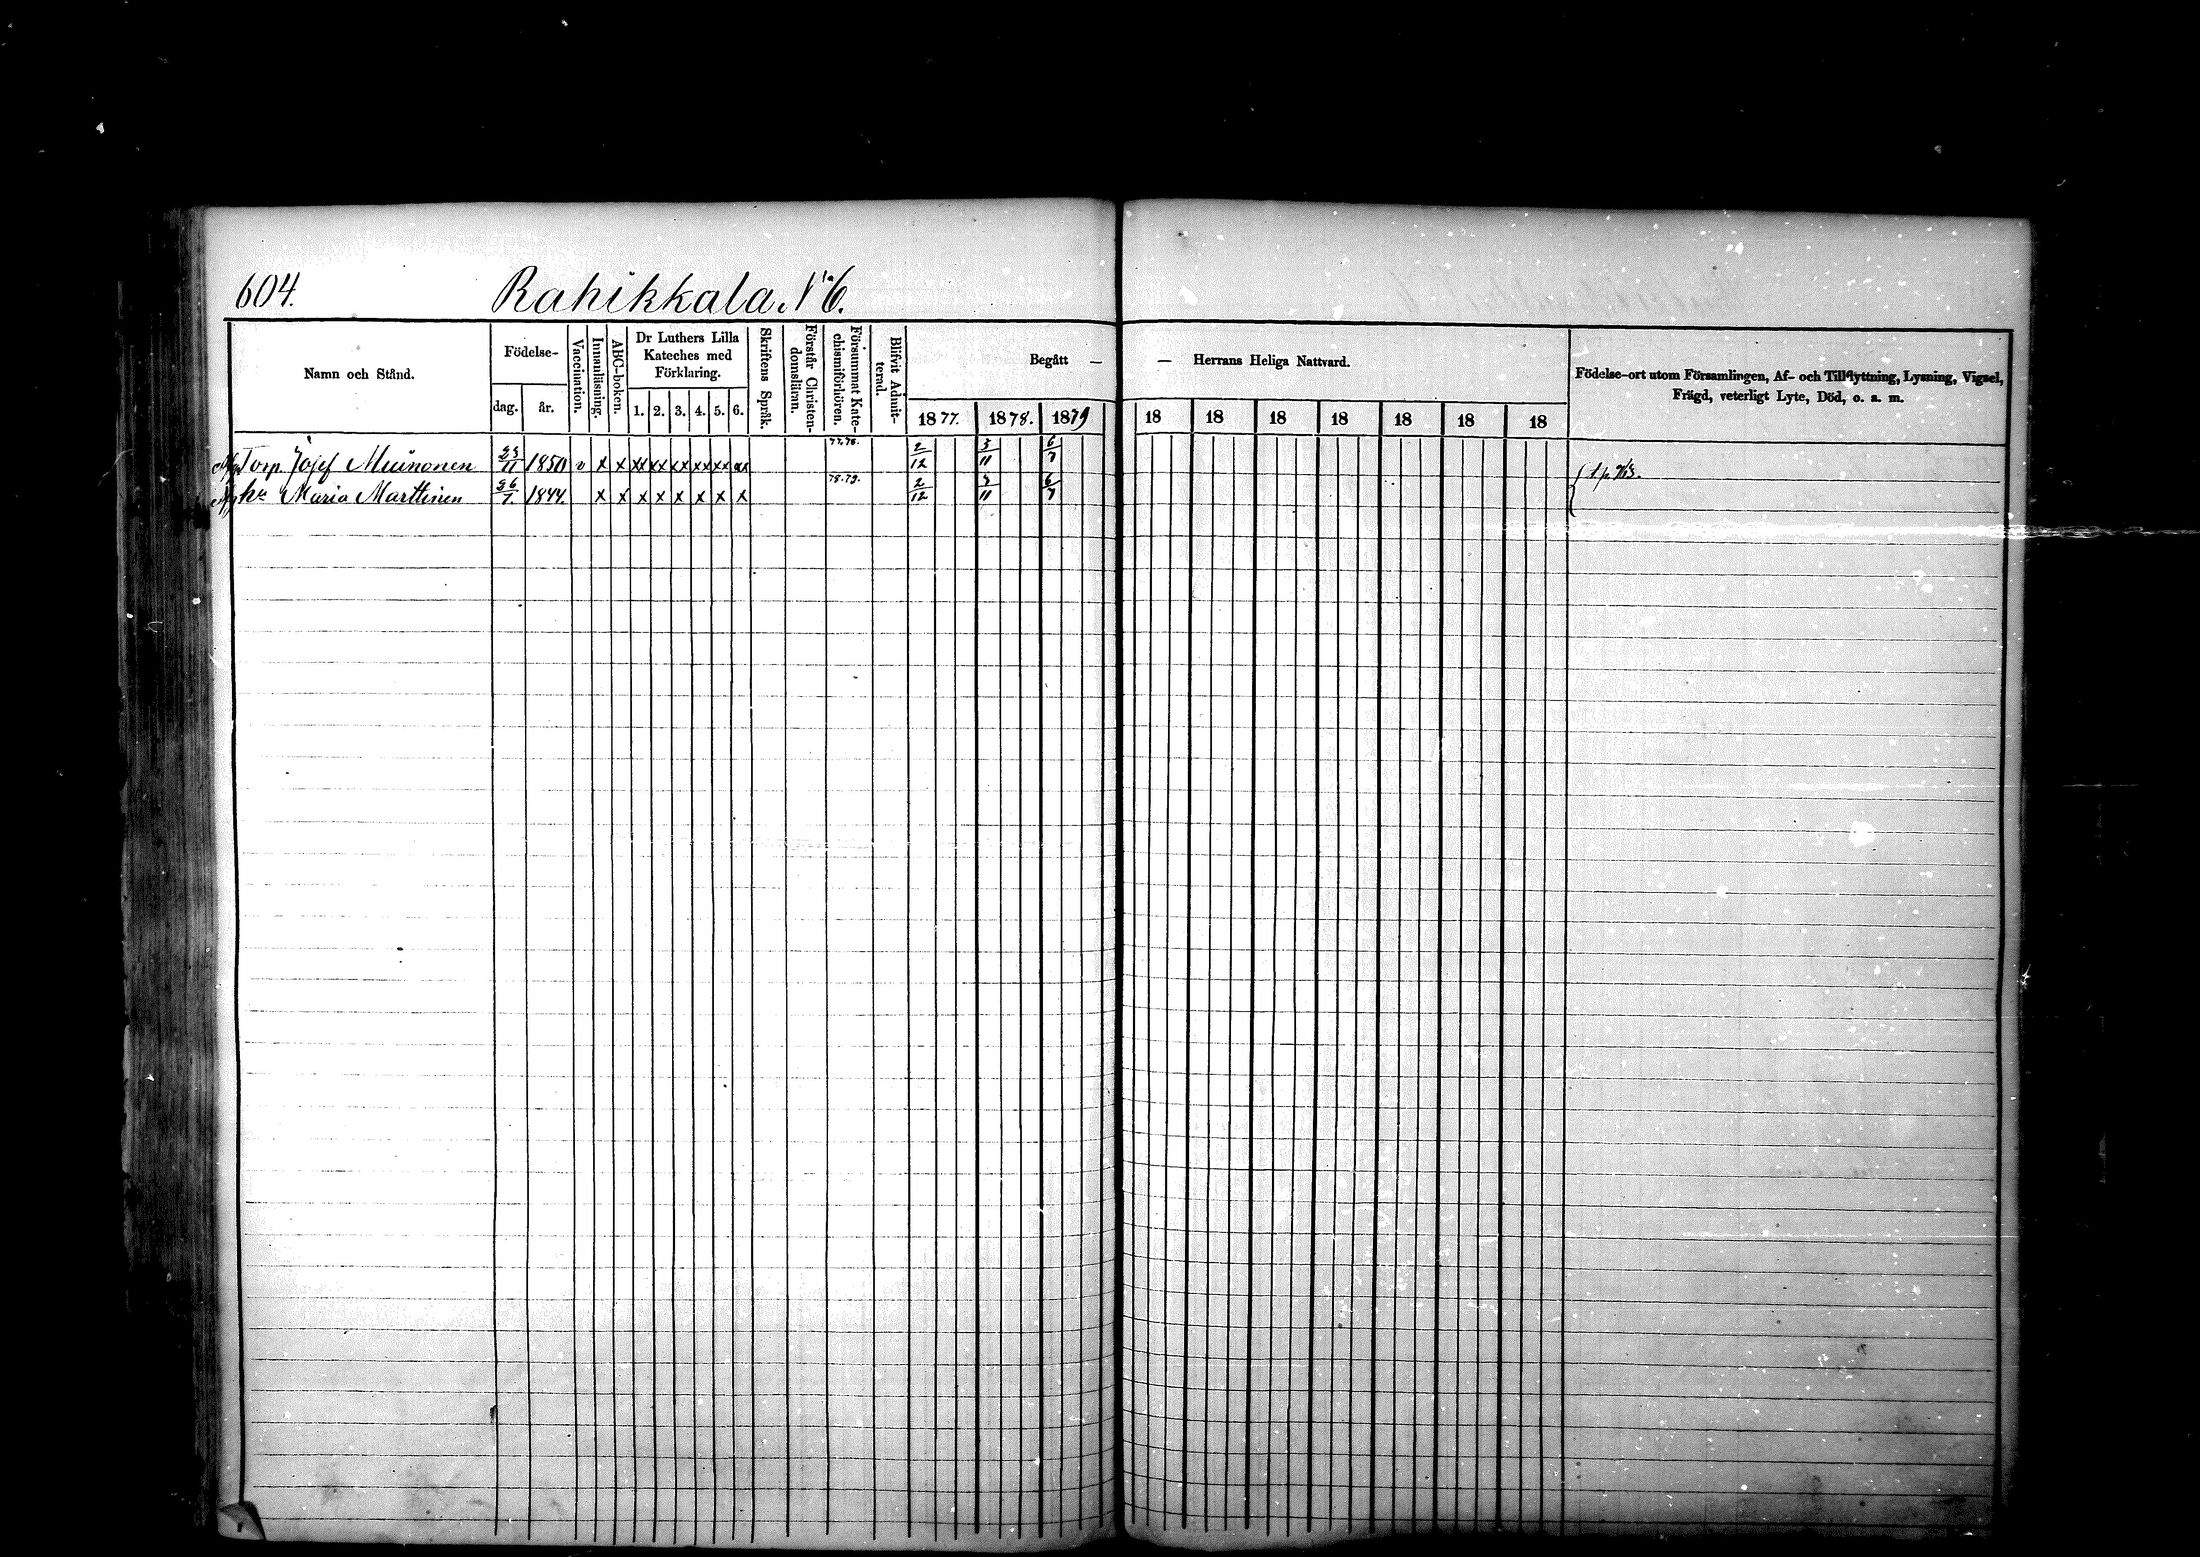 604. Rahikkala. No 6.
Namn och Stånd. Födelse- dag. år. Vaccination. Innanläsning. ABC-boken. Dr Luthers Lilla Kateches med Förklaring. 1. 2. 3. 4. 5. 6. Skriftens Språk. Förstår Christendomsläran. Försummat Katechismiförhören. Blifvit Admitterad. Begått — — Herrans Heliga Nattvard. Födelse-ort utom Församlingen, Af- och Tillflyttning, Lysning, Vigsel, Frägd, veterligt Lyte, Död, o. s. m.
1877. 1878. 1879 18 18 18 18 18 18 18
Torp. Josef Muinonen 23/11 1850 v x x xx xx xx xx xx 77.78. 2/12 3/11 6/7
hu Maria Marttinen 26/1. 1844. x x x x x x x x 78.79. 2/12 3/11 6/7